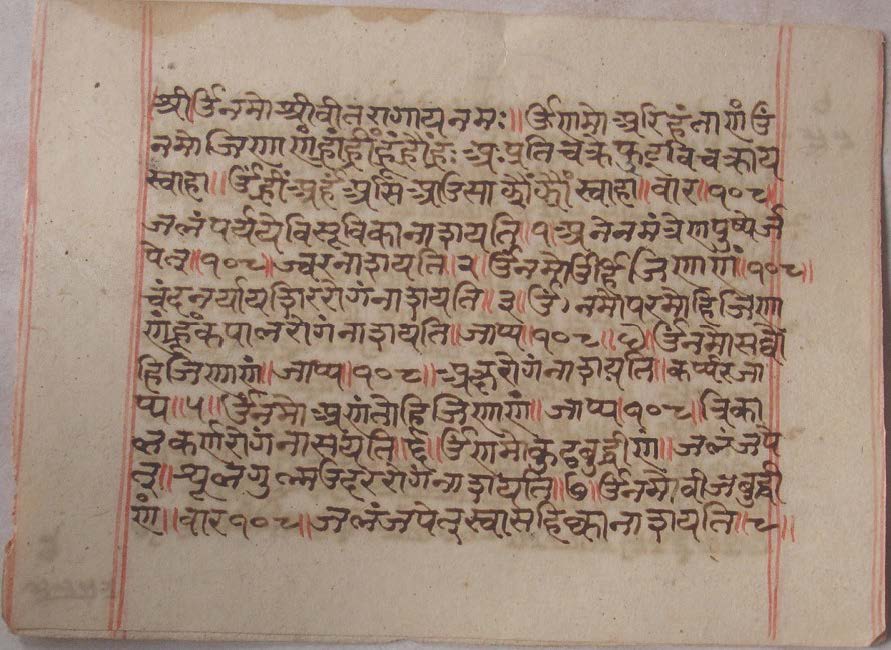 श्री ॐ नमो श्री वीतरागाय नमः॥ ॐ णमो अरिहंताणं ॐ
नमो जिणाणं ह्रां ह्रीं ह्रूं ह्रौं ह्रः अप्रतिचक्रे फुट् विचक्राय
स्वाहा॥ ॐ ह्रीं अर्हं असिआउसा झ्रौं झ्रौं स्वाहा॥ वार॥१०८॥
जलं विसूचिका नाशयति॥१॥ अनेन मंत्रेण पुष्पे र्ज
पेत्॥१०८॥ ज्वर नाशयति॥२॥ ॐ नमो जिणाणं॥१०८॥
चंदन शिररोगं नाशयति॥३॥ ॐ नमो परमोहिजिण
णं कपालरोगं नाशयति॥ जाप्प॥१०८॥४॥ ॐ नमो सव्वो
हिजिणाणं॥ जाप्प॥१०८॥ रोगं नाशयति॥ जा
प्प॥५॥ ॐ नमो अणंतोहिजिणाणं॥ जाप्प॥१०८॥ त्रिका
ल कर्णरोगं नासयति॥६॥ ॐ णमो कुट्ठबुद्धीणं॥ जलं जपे
त्॥ गुल्म उदररोगं नाशयति॥७॥ ॐ नमो वीजबुद्धी
णं॥ वार १०८॥ जलं जपेत् स्वास हिक्का नाशयति॥८॥